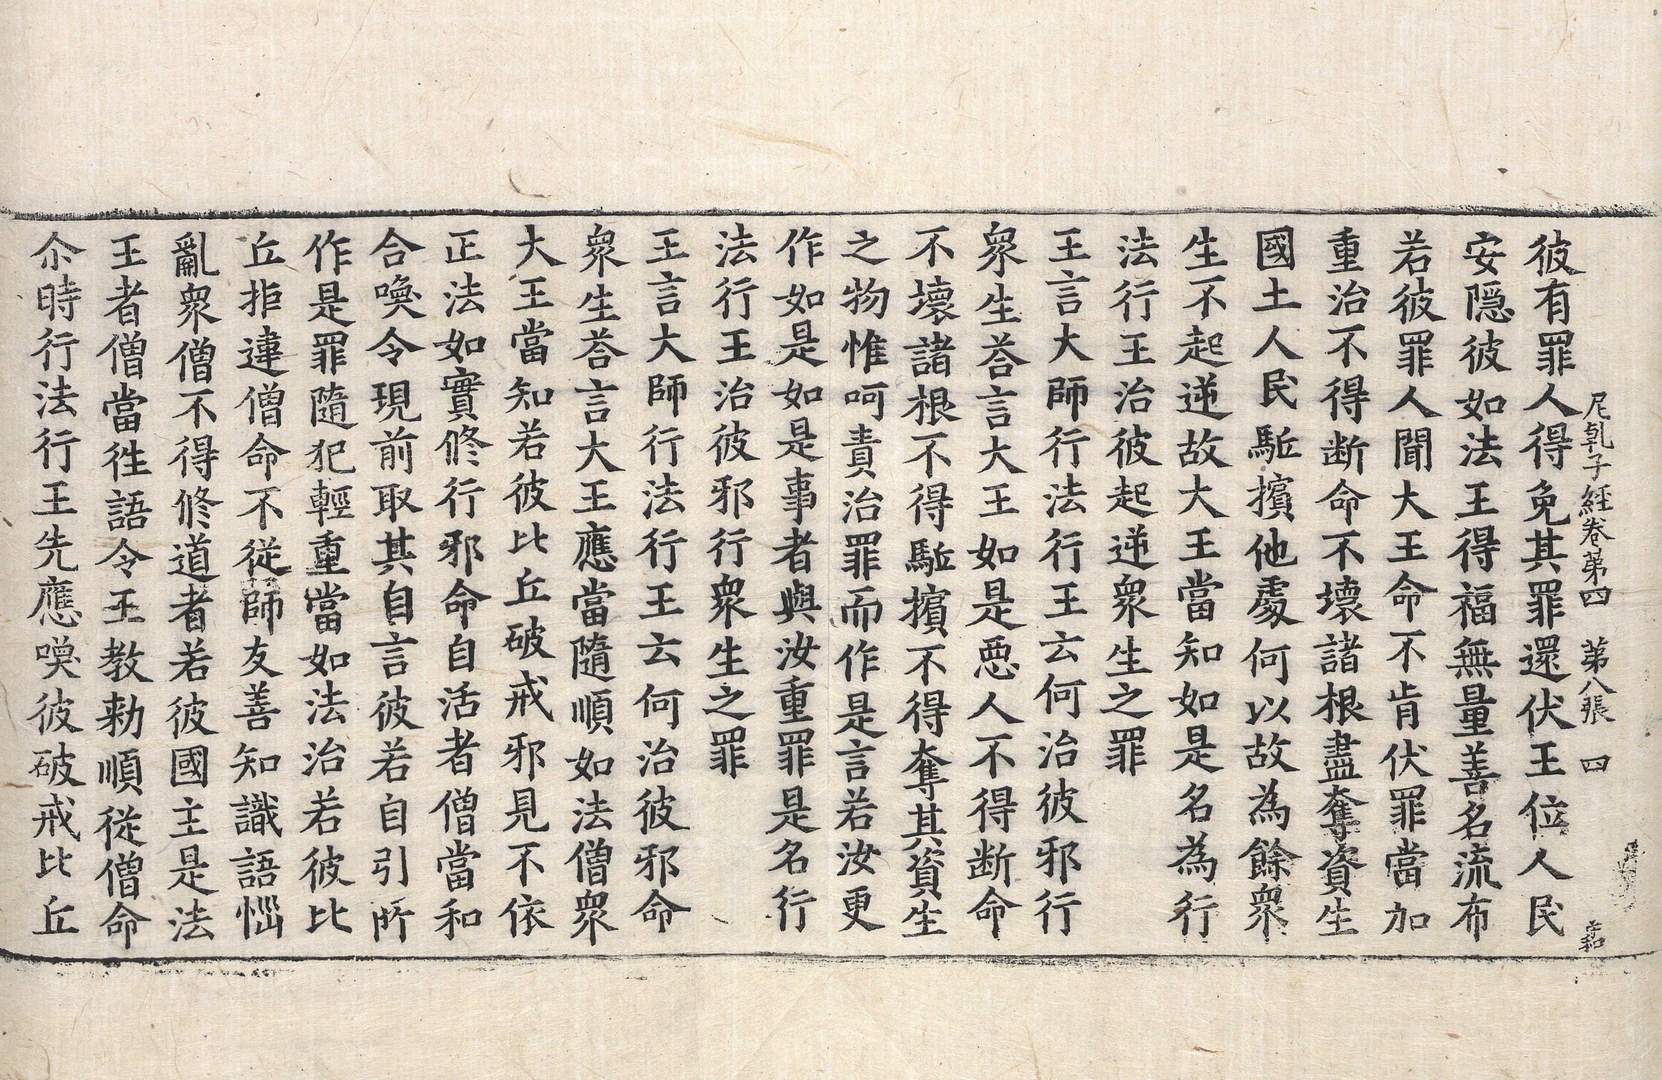 尼乹子經卷第四 第八張 四
彼有罪人得免其罪還伏王位人民
安隱彼如法王得福無量善名流布
若彼罪人聞大王命不肯伏罪當加
重治不得断命不壞諸根盡奪資生
國土人民駈擯他處何以故為餘衆
生不起逆故大王當知如是名為行
法行王治彼起逆衆生之罪
王言大師行法行王云何治彼邪行
衆生荅言大王如是惡人不得断命
不壞諸根不得駈擯不得奪其資生
之物惟呵責治罪而作是言若汝更
作如是如是事者與汝重罪是名行
法行王治彼邪行衆生之罪
王言大師行法行王云何治彼邪命
衆生荅言大王應當隨順如法僧衆
大王當知若彼比丘破戒邪見不依
正法如實修行邪命自活者僧當和
合喚令現前取其自言彼若自引所
作是罪隨犯輕重當如法治若彼比
丘拒違僧命不從師友善知識語惱
亂衆僧不得修道者若彼國主是法
王者僧當往語令王教勑順從僧命
尒時行法行王先應喚彼破戒比丘